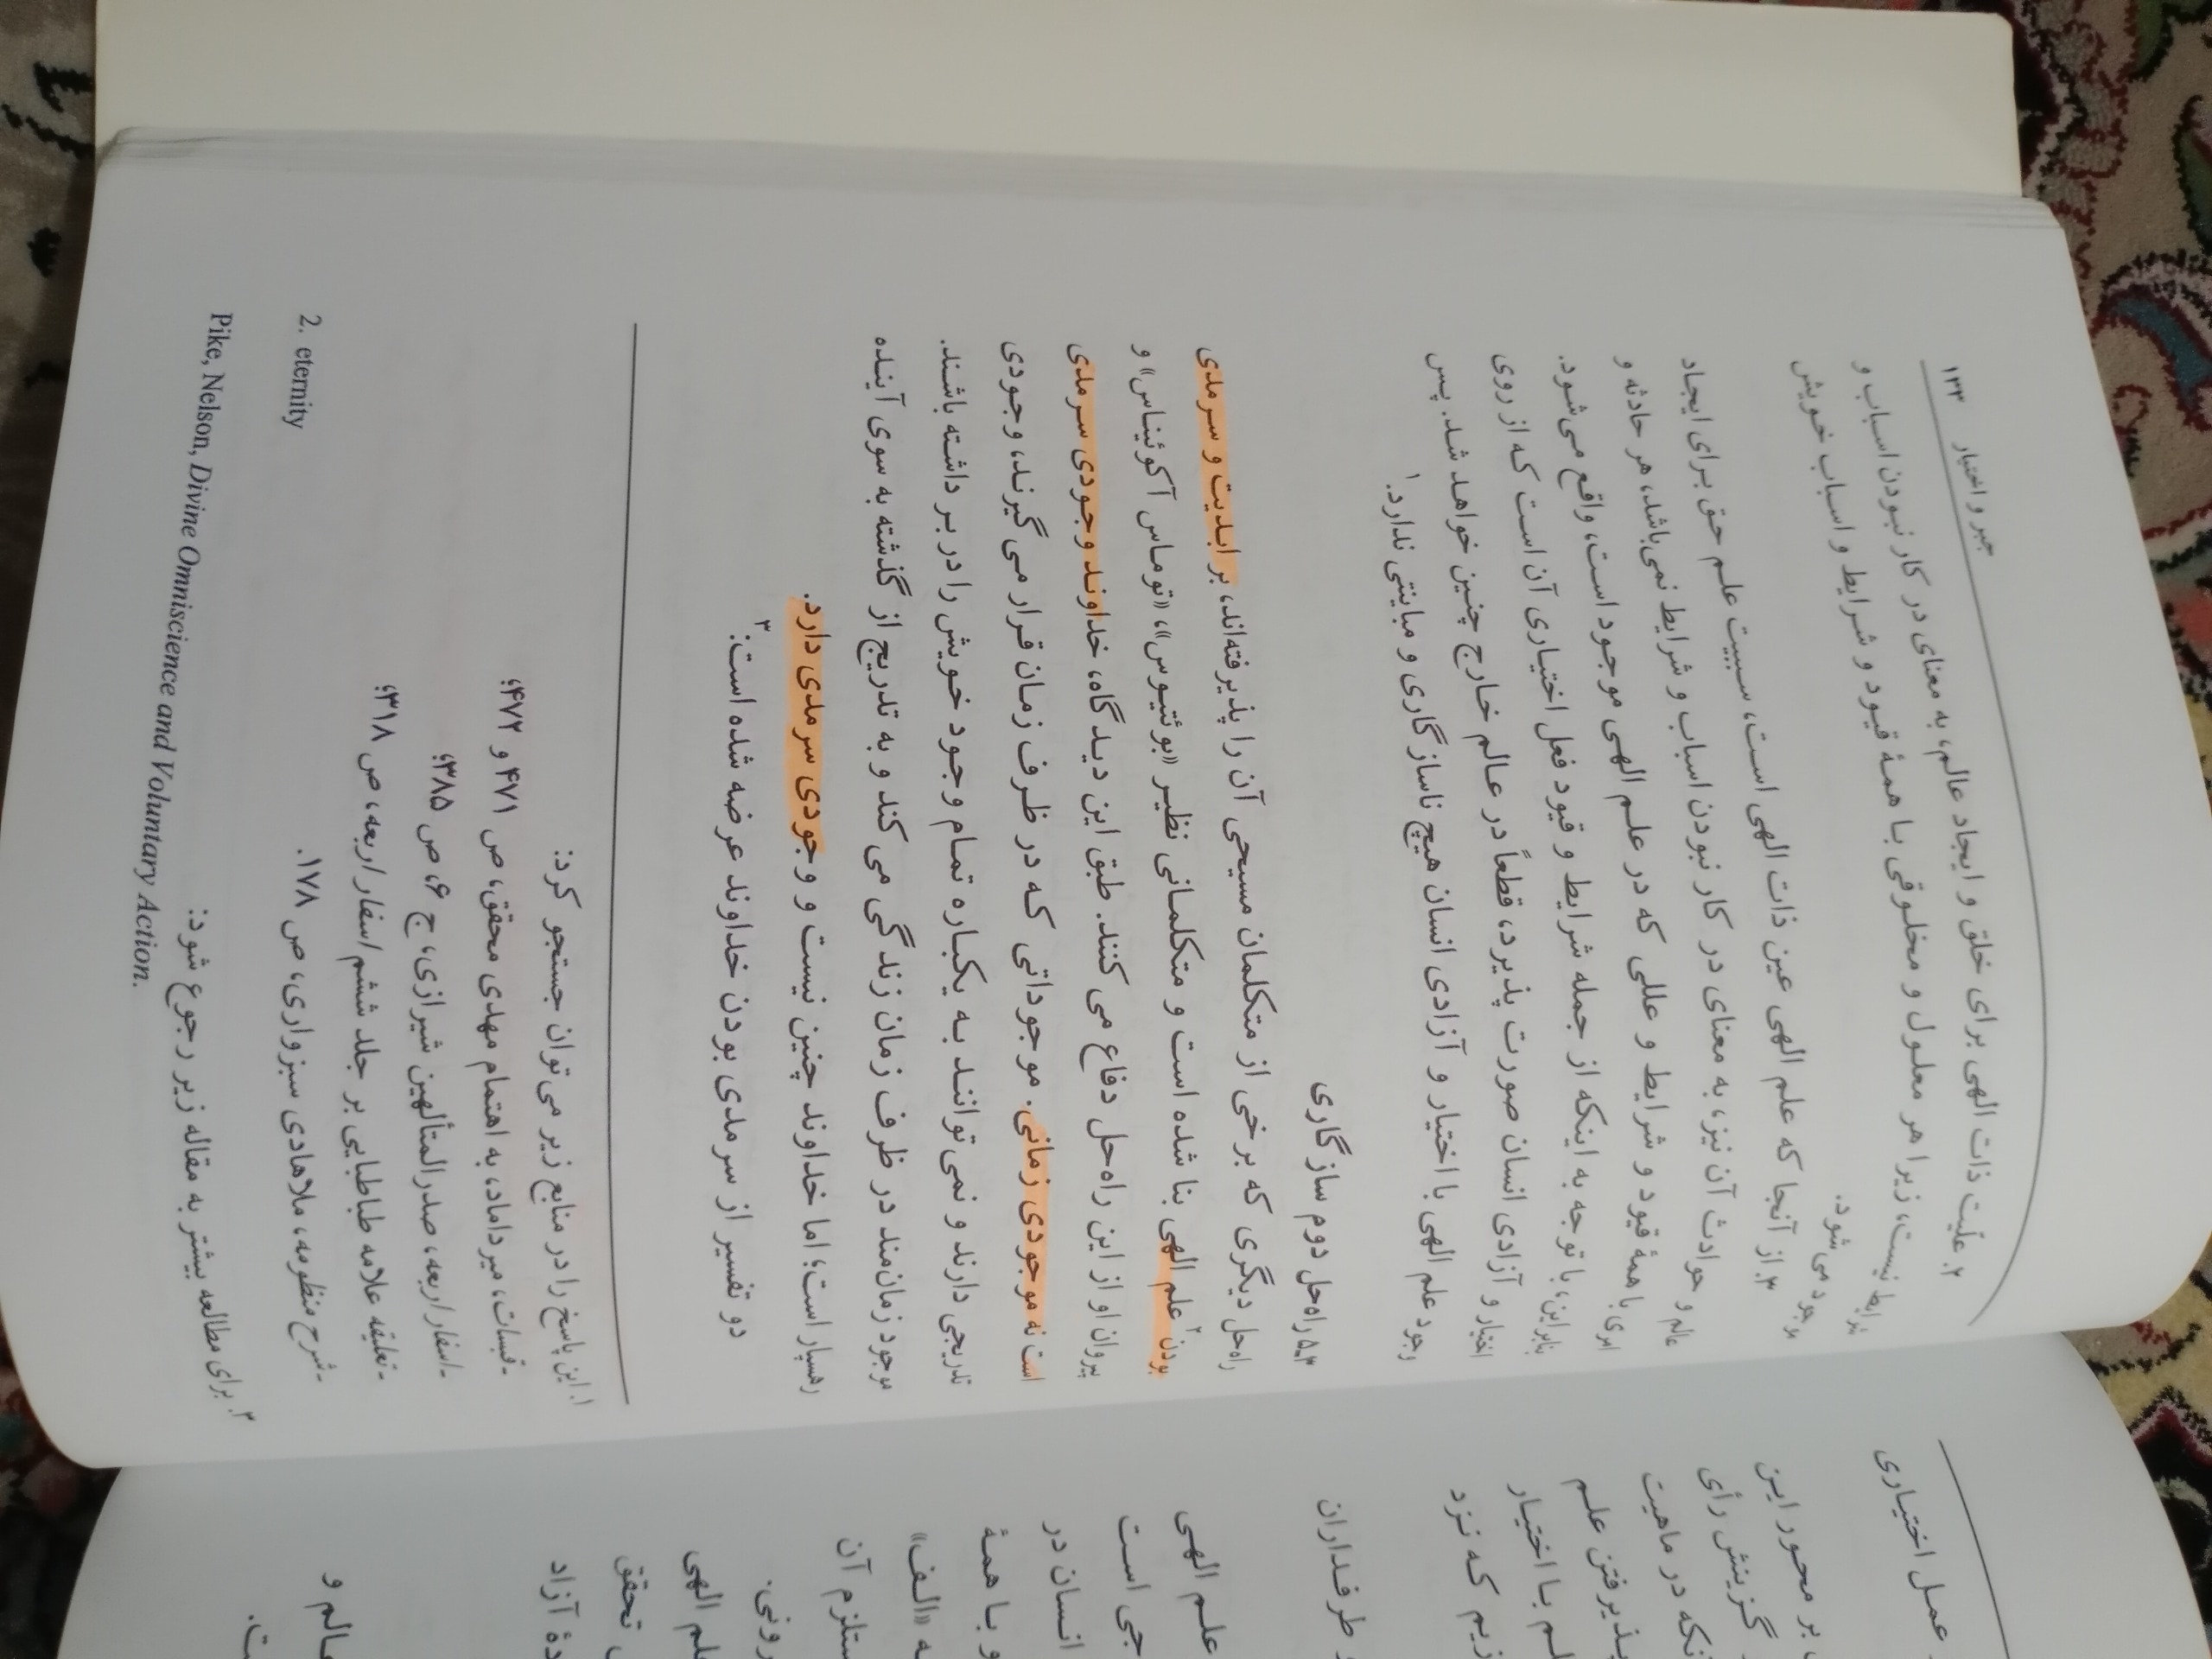 جبر و اختیار ۱۳۳
۲. علّیت ذات الهی برای خلق و ایجاد عالم، به معنای در کار نبودن اسباب و
شرایط نیست، زیرا هر معلول و مخلوقی با همهٔ قیود و شرایط و اسباب خویش
موجود می‌شود.
۳. از آنجا که علم الهی عین ذات الهی است، سببیت علم حق برای ایجاد
عالم و حوادث آن نیز، به معنای در کار نبودن اسباب و شرایط نمی‌باشد، هر حادثه و
امری با همهٔ قیود و شرایط و عللی که در علم الهی موجود است، واقع می‌شود.
بنابراین، با توجه به اینکه از جمله شرایط و قیود فعل اختیاری آن است که از روی
اختیار و آزادی انسان صورت پذیرد، قطعاً در عالم خارج چنین خواهد شد. پس
وجود علم الهی با اختیار و آزادی انسان هیچ ناسازگاری و مباینتی ندارد.۱
۳ـ۵. راه‌حل دوم سازگاری
راه‌حل دیگری که برخی از متکلمان مسیحی آن را پذیرفته‌اند، بر ابدیت و سرمدی
بودن۲ علم الهی بنا شده است و متکلمانی نظیر «بوئتیوس»، «توماس آکوئیناس» و
پیروان او از این راه‌حل دفاع می‌کنند. طبق این دیدگاه، خداوند وجودی سرمدی
است نه موجودی زمانی. موجوداتی که در ظرف زمان قرار می‌گیرند، وجودی
تدریجی دارند و نمی‌توانند به یکباره تمام وجود خویش را در بر داشته باشند.
موجود زمان‌مند در ظرف زمان زندگی می‌کند و به تدریج از گذشته به سوی آینده
رهسپار است؛ اما خداوند چنین نیست و وجودی سرمدی دارد.
دو تفسیر از سرمدی بودن خداوند عرضه شده است:۳
۱. این پاسخ را در منابع زیر می‌توان جستجو کرد:
ـ قبسات، میرداماد، به اهتمام مهدی محقق، ص ۴۷۱ و ۴۷۲؛
ـ اسفار اربعه، صدرالمتألهین شیرازی، ج ۶، ص ۳۸۵؛
ـ تعلیقه علامه طباطبایی بر جلد ششم اسفار اربعه، ص ۳۱۸؛
ـ شرح منظومه، ملاهادی سبزواری، ص ۱۷۸.
2. eternity
۳. برای مطالعه بیشتر به مقاله زیر رجوع شود:
Pike, Nelson, Divine Omniscience and Voluntary Action.
عمل اختیاری
بر محور این
گزینش رأی
در ماهیت
پذیرفتن علم
با اختیار
که نزد
طرفداران
علم الهی
است
انسان در
و با همهٔ
«الف»
آن
الهی
تحقق
آزاد
و